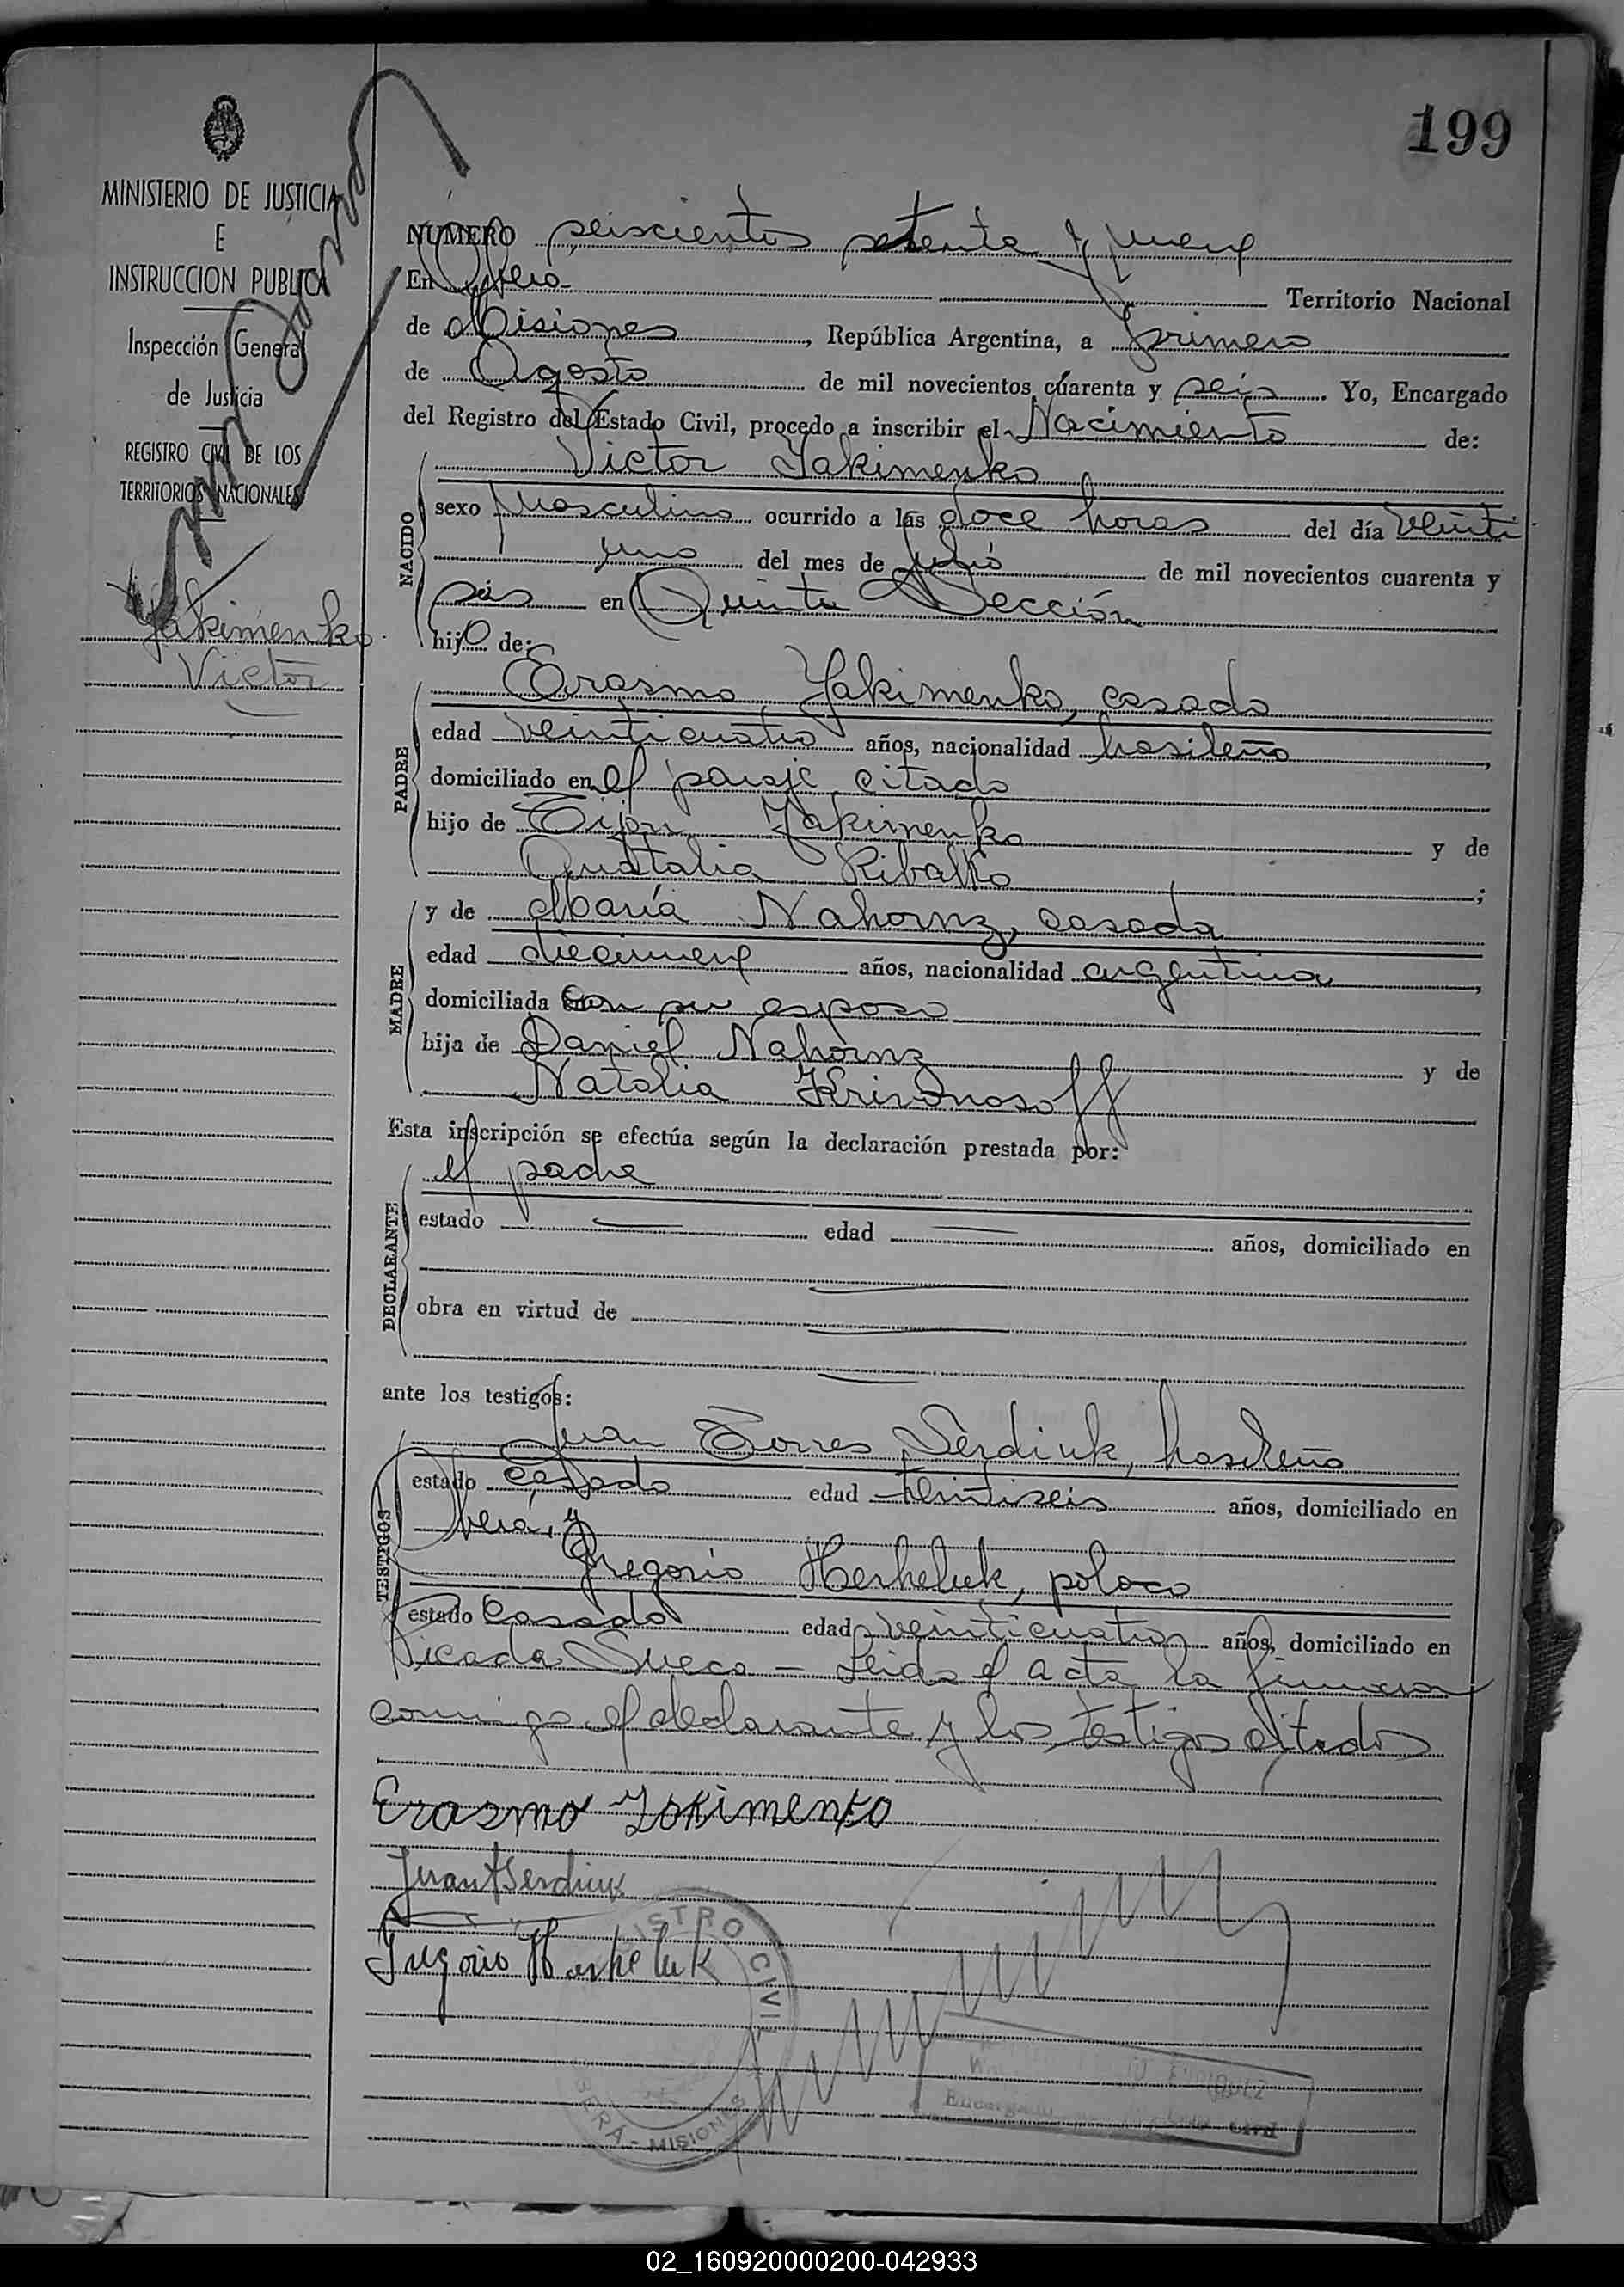 199
MINISTERIO DE JUSTICIA
E
INSTRUCCION PUBLICA
Inspección General
de Justicia
REGISTRO CIVIL DE LOS
TERRITORIOS NACIONALES
Yakimenko
Victor
NUMERO seiscientos setenta y nueve
En Oberá Territorio Nacional
de Misiones, República Argentina, a primero
de Agosto de mil novecientos cuarenta y seis. Yo, Encargado
del Registro del Estado Civil, procedo a inscribir el Nacimiento de:
NACIDO
Victor Yakimenko
sexo masculino ocurrido a las doce horas del día veinti
uno del mes de julio de mil novecientos cuarenta y
seis en Quinta Sección
hijo de:
PADRE
Erasmo Yakimenko, casado
edad veinticuatro años, nacionalidad brasileño,
domiciliado en el paraje citado
hijo de Yakimenko y de
Anatalia Ribalko;
MADRE
y de María Nahornz, casada
edad diecinueve años, nacionalidad argentina,
domiciliada con su esposo
hija de Daniel Nahornz y de
Natalia Krivonosoff
Esta inscripción se efectúa según la declaración prestada por:
DECLARANTE
el padre
estado — edad — años, domiciliado en
obra en virtud de
ante los testigos:
TESTIGOS
Juan Torres Serdiuk, brasileño
estado casado edad veintiseis años, domiciliado en
Oberá, y
Gregorio Herheluk, polaco
estado casado edad veinticuatro años, domiciliado en
Picada Sueca – Leida el acta la firmaron
conmigo el declarante y los testigos citados
Erasmo Yakimenko
Juan T Serdiuk
Gregorio Herheluk
REGISTRO CIVIL
OBERA - MISIONES
Encargado Civil
02_160920000200-042933